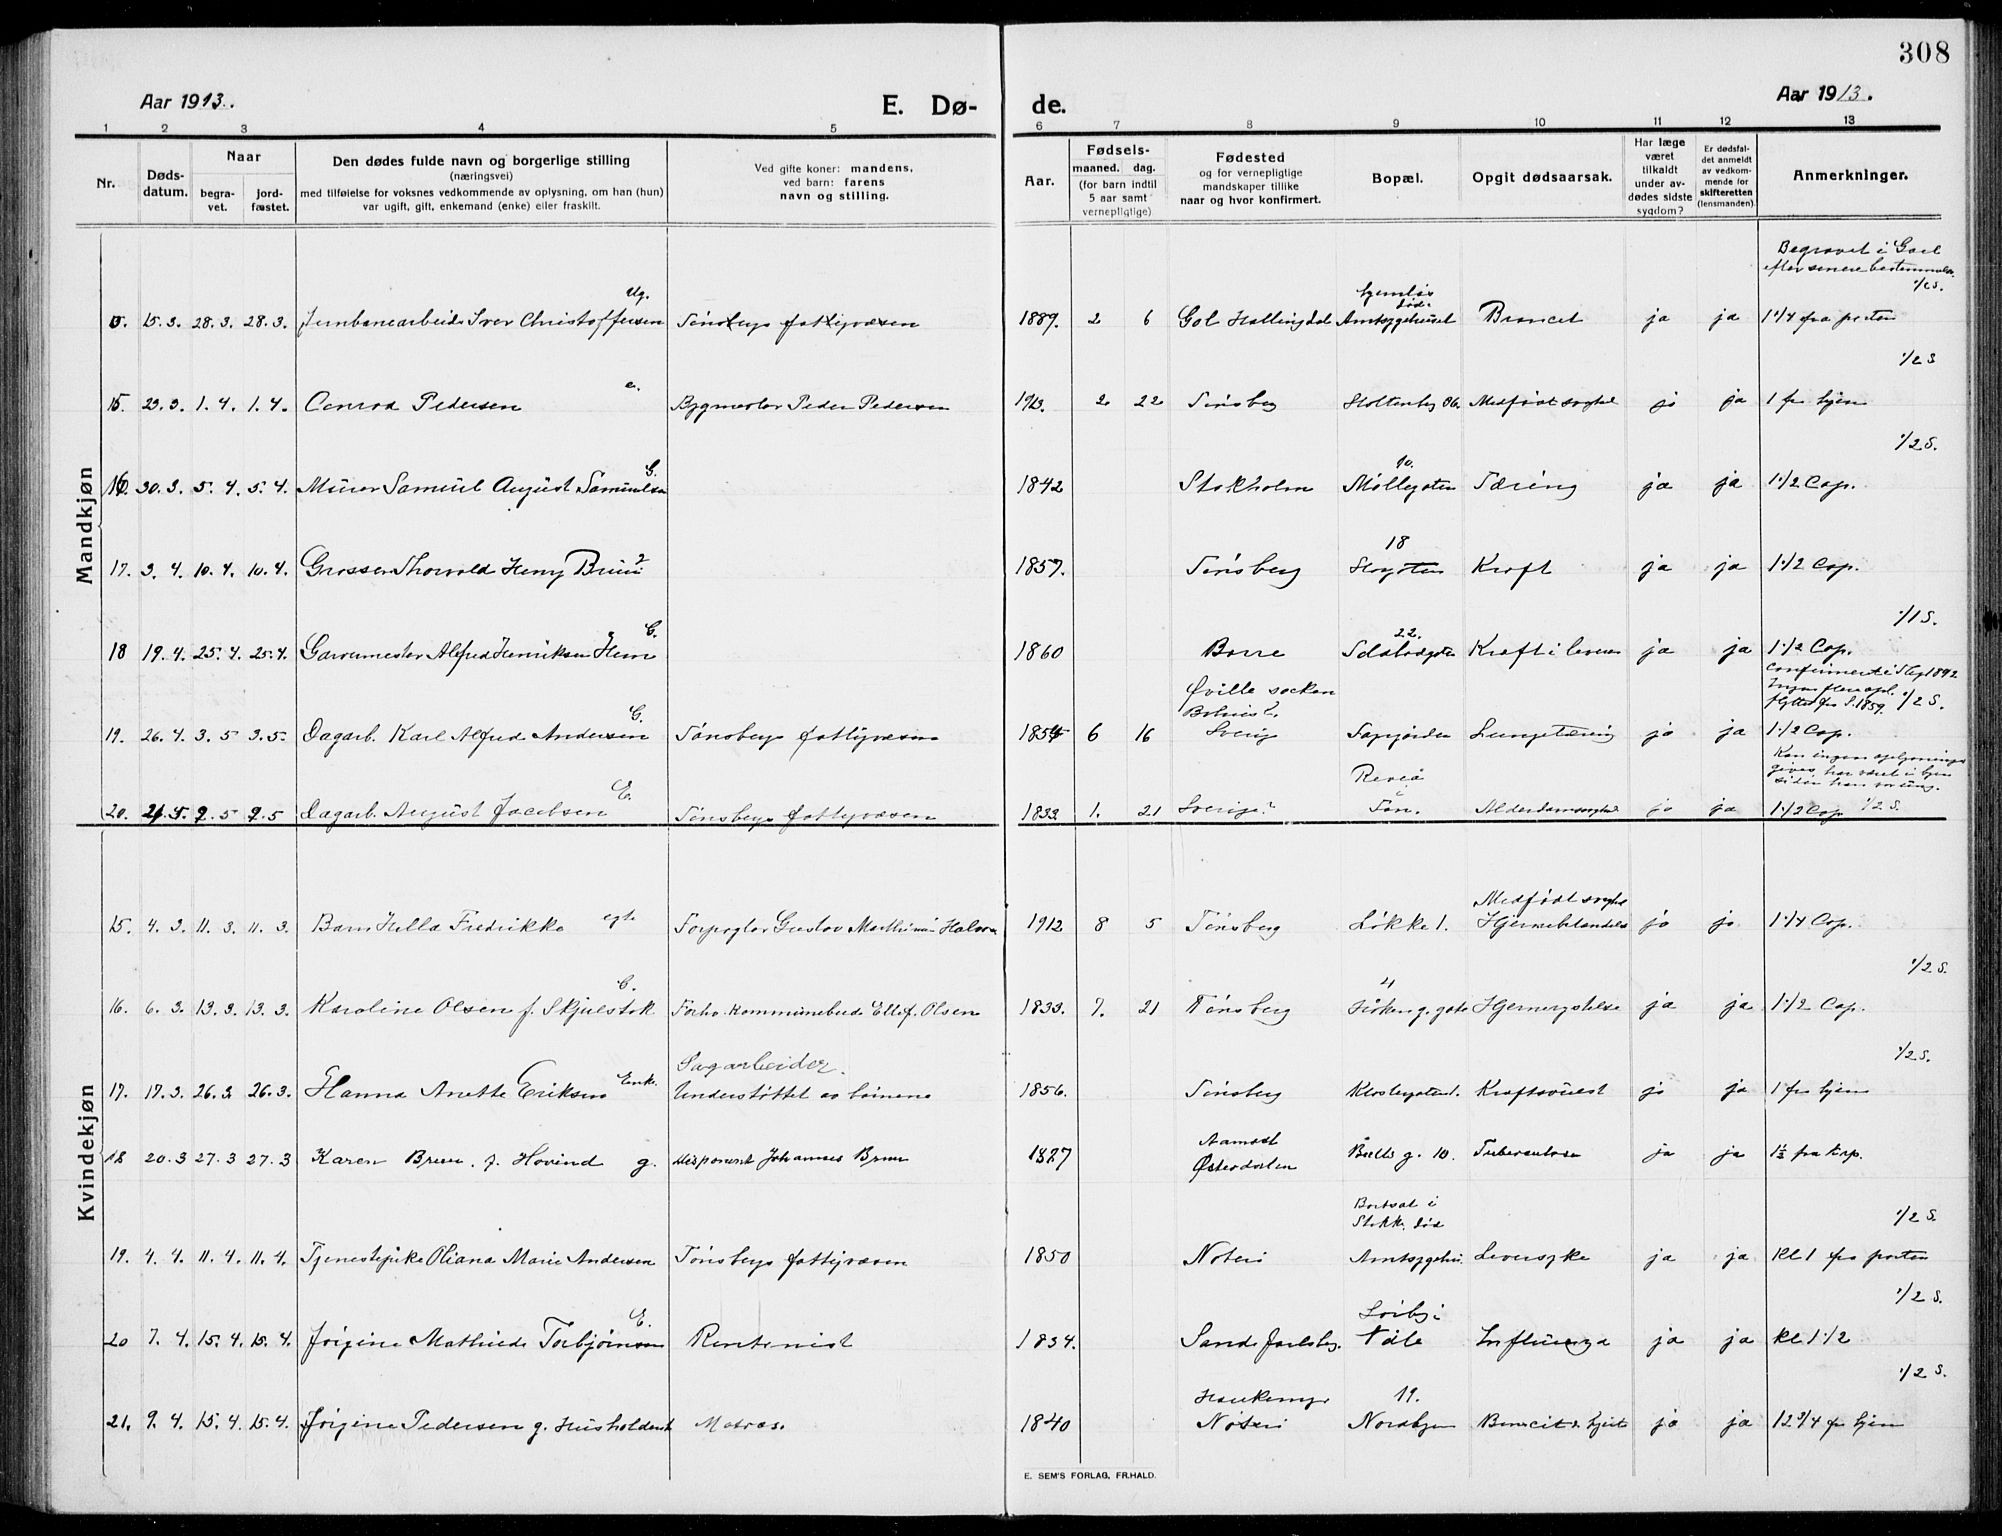 308
Aar 1913.
E. Dø- de.
Aar 1913.
1 2 3 4 5 6 7 8 9 10 11 12 13
Nr.
Døds-
datum.
Naar
begra-
vet.
jord-
fæstet.
Den dødes fulde navn og borgerlige stilling
(næringsvei)
med tilføielse for voksnes vedkommende av oplysning, om han (hun)
var ugift, gift, enkemand (enke) eller fraskilt.
Ved gifte koner: mandens,
ved barn: farens
navn og stilling.
Aar.
Fødsels-
maaned. dag.
(for barn indtil
5 aar samt
vernepligtige)
Fødested
og for vernepligtige
mandskaper tillike
naar og hvor konfirmert.
Bopæl.
Opgit dødsaarsak.
Har læge
været
tilkaldt
under av-
dødes sidste
sygdom?
Er dødsfal-
det anmeldt
av vedkom-
mende for
skifteretten
(lensmanden).
Anmerkninger.
Mandkjøn
Begravet i Goel
efter senere bestemmelse.
1/2 S.
Ug.
15. 3. 28. 3. 28. 3. Jernbanearbeider Iver Christoffersen Tønsbergs fattigvæsen 1889. 2 6 Gol Hallingdal Amtsygehuset Brancet ja ja 1 1/4 fra porten
1/2 S
e.
15. 23. 3. 1. 4. 1. 4. Conrad Pedersen Bygmester Peder Pedersen 1913. 2 22 Tønsberg Stoltenbg 36. Medfødt svaghet ja ja 1 fra hjem
1/2 S.
G. 10.
16. 30. 3. 5. 4. 5. 4. Murer Samuel August Samuelsen 1842 Stokholm Møllegaten Tæring ja ja 1 1/2 Cap.
18
17. 3. 4. 10. 4. 10. 4. Grosser Thorvald Henry Bruun 1857. Tønsberg Storgaten Kræft ja ja 1 1/2 Cap.
1/1 S.
G. 22.
18 19. 4. 25. 4 25. 4. Garvermester Alfred Henriksen Hem 1860 Borre Kræft i leveren ja ja 1 1/2 Cap.
Øville socken
1/2 S.
G.
19. 26. 4. 3. 5 3. 5. Dagarb. Karl Alfred Andersen Tønsbergs fattigvæsen 1854 6 16 Sverig Lungetæring ja ja 1 1/2 Cap.
Kan ingen oplysninger
E.
20. 2. 5 2. 5 Dagarb. August Jacobsen Tønsbergs fattigvæsen 1833. 1. 21 Sverige? Tøn. Alderdomssvaghed ja ja 1 1/2 Cap 1/2 S.
Kvindekjøn
Medfødt svaghed
egte
15. 4. 3. 11. 3. 11. 3. Barn Hella Fredrikke Gustav Marthinius Halvorsen 1912 8 5 Tønsberg Løkke 1. Hjernebetændelse ja ja 1 1/4 Cap.
1/2 S.
G. 4
16. 6. 3. 13. 3. 13. 3. Karoline Olsen f. Skjelstok Forhv. Kommunebud Ellef Olsen 1833. 7. 21 Tønsberg Hjernerystelse ja ja 1 1/2 Cap.
1/2 S.
Sagarbeider.
Enke.
17. 17. 3. 26. 3 26. 3. Hanna Anette Eriksen Understøttet av børnene 1856. Tønsberg Klostergaten 1. Kræftsvulst ja ja 1 fra hjem
Aamodt
18 20. 3 27. 3 27. 3 Karen Bruun f. Hovind g. Disponent Johannes Bruun 1877 Østerdalen g. 10. Tuberculose ja ja 1 1/2 fra kap.
Bortsat i
Stokke død
1/2 S.
19. 4. 4. 11. 4. 11. 4. Tjenestepike Oliana Marie Andersen Tønsbergs fattigvæsen 1850 Nøterø Amtsygehus. Leversyke ja ja Kl 1 fra porten
1/2 S.
E.
20 7. 4. 15. 4. 15. 4. Jørgine Mathilde Torbjørnsen Rentenist 1834. Sande Jarlsberg. Influenza ja ja Kl 1 1/2
1/2 S.
19.
21. 9. 4. 15. 4. 15. 4. Jørgine Pedersen g. Husholderske Matros. 1840 Nøterø Nordbyen ja ja 12 3/4 fra hjem
E. SEM'S FORLAG, FR.HALD.